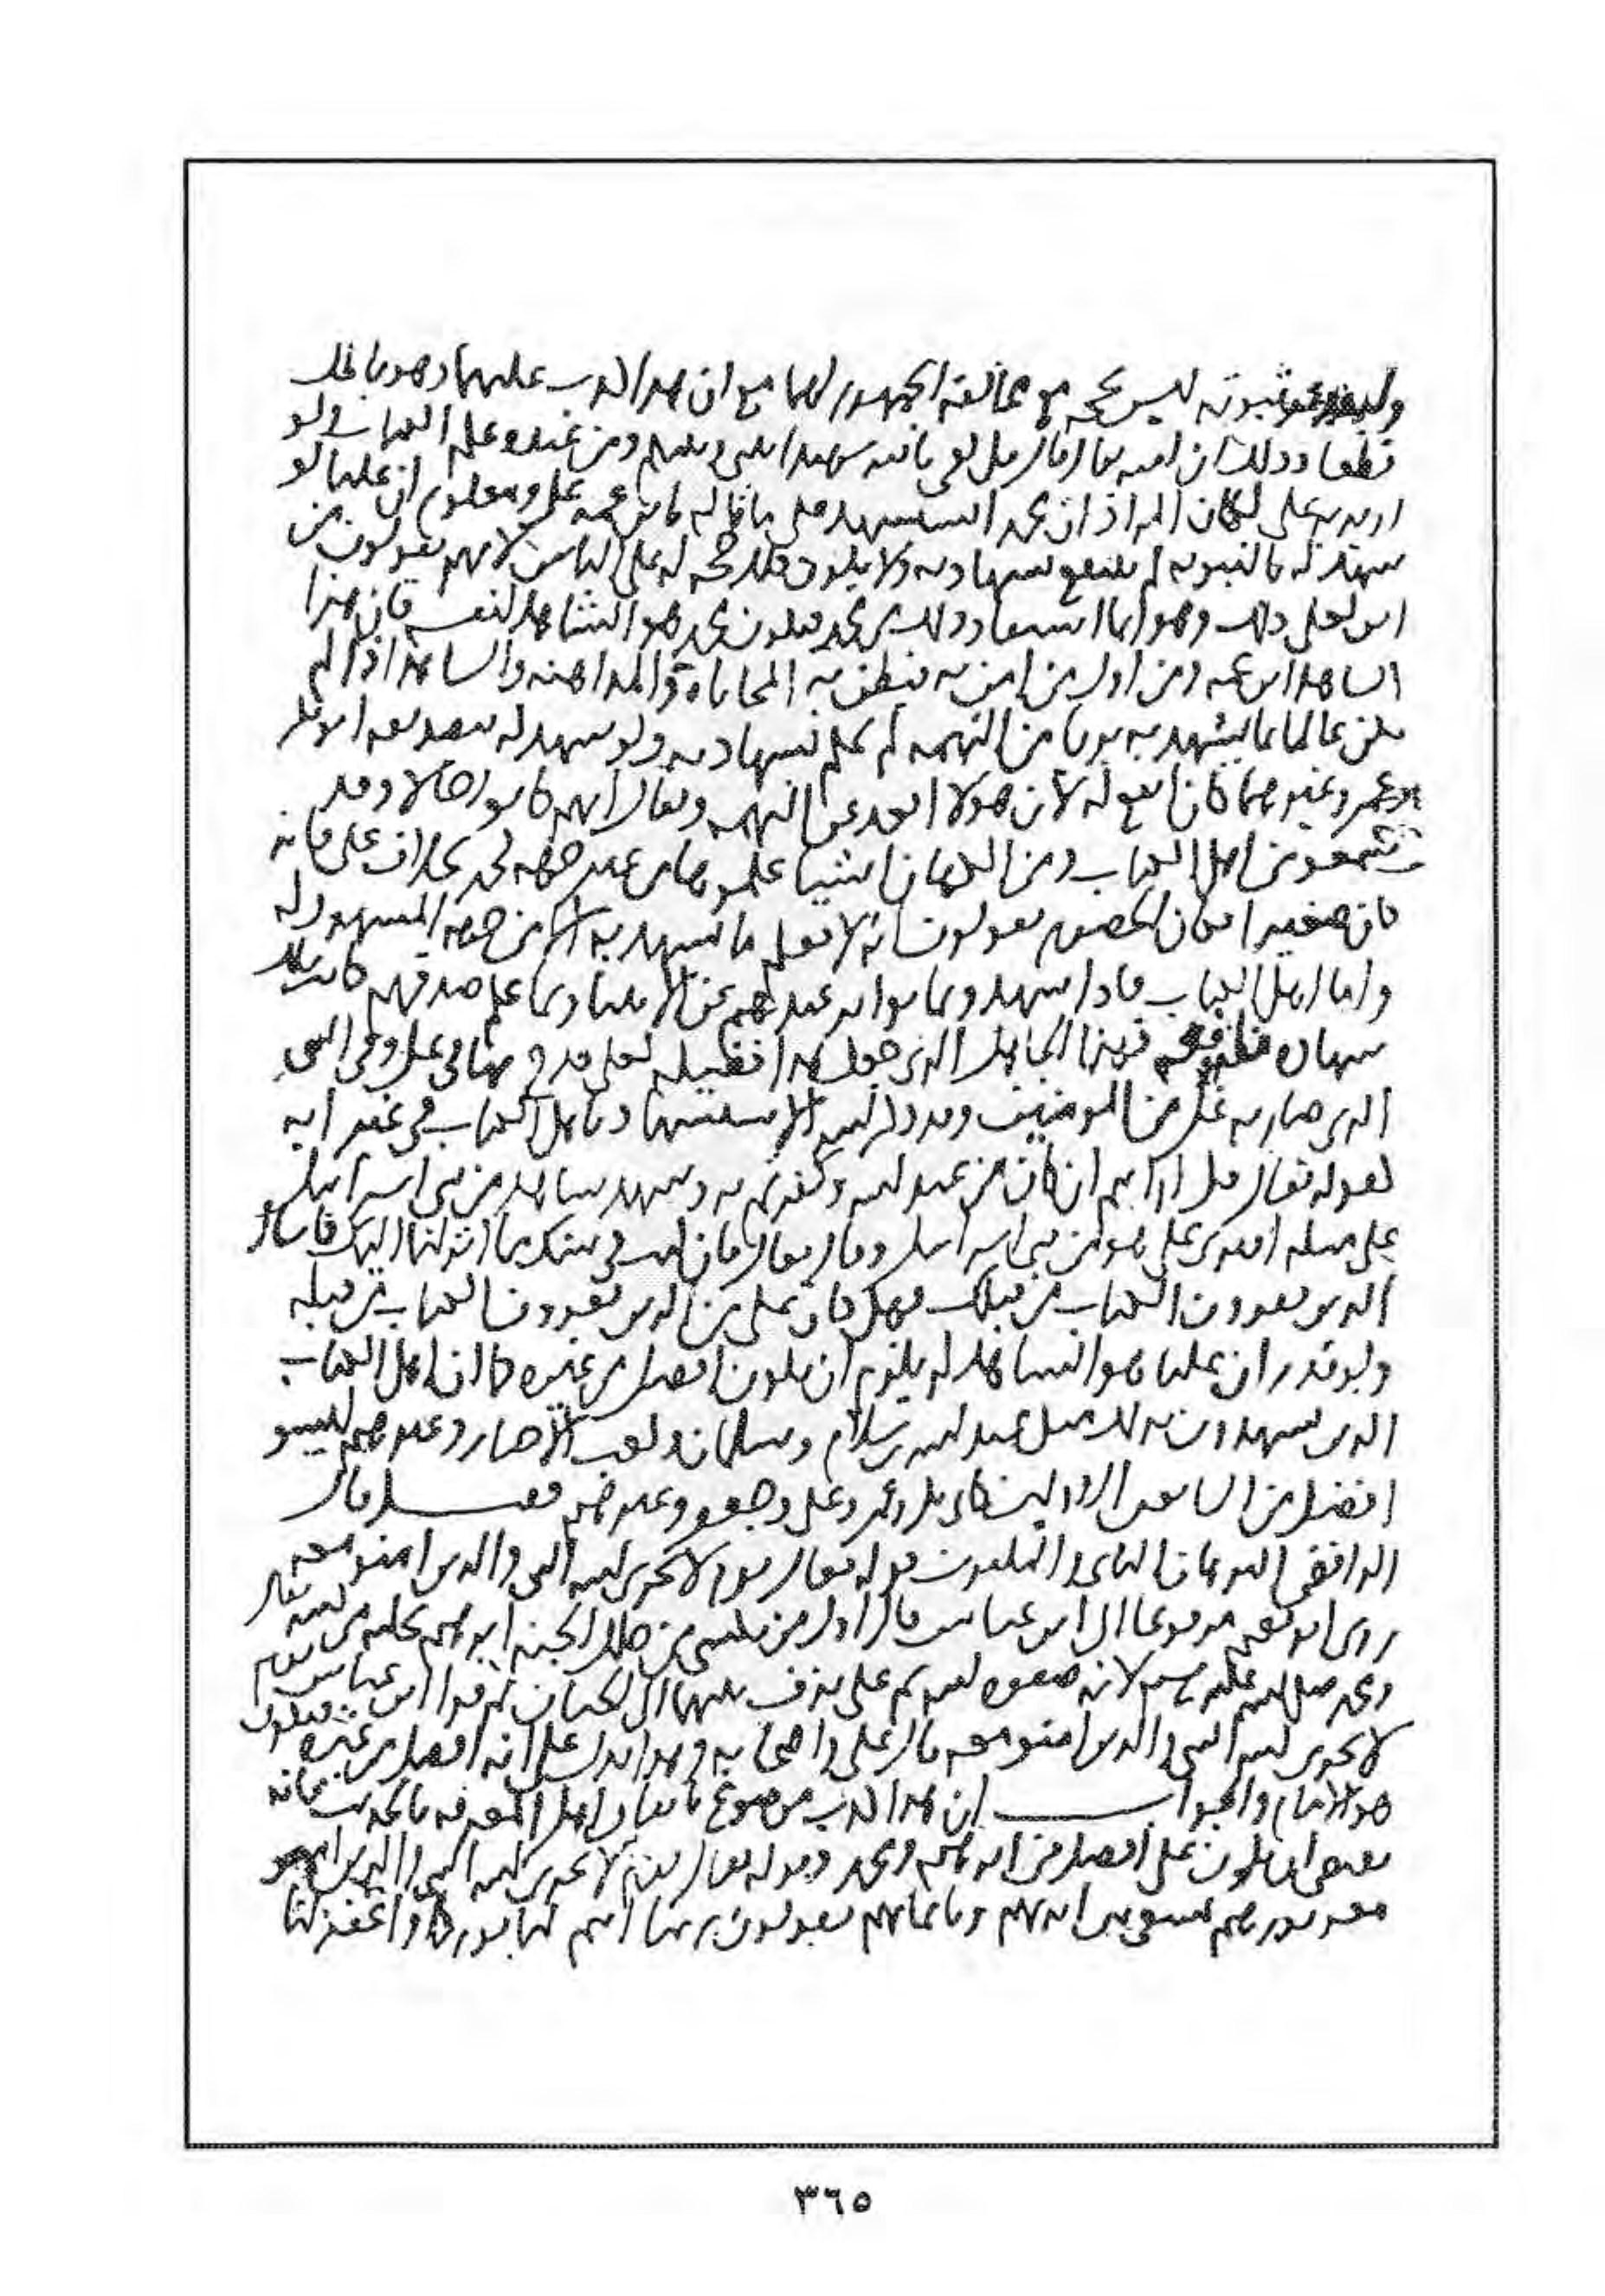 وبتقدير ثبوته ليس بحجة مع مخالفة الجمهور لهما مع ان هذا كذب عليهما وهو باطل
قطعا وذلك ان الله تعالى قال قل كفى بالله شهيدا بيني وبينكم ومن عنده علم الكتاب ولو
اريد به علي لكان المراد ان محمدا استشهد على ما قاله بابن عمه علي ومعلوم ان عليا لو
شهد له بالنبوة لم ينتفع بشهادته ولا يكون ذلك حجة له على الناس لانهم يقولون من
اين لعلي ذلك وهو انما استفاد ذلك من محمد فيكون محمد هو الشاهد لنفسه فان هذا
الشاهد ابن عمه ومن اول من امن به فيظن به المحاباة والمداهنة والشاهد اذا لم
يكن عالما بما يشهد به بريا من التهمة لم يحكم بشهادته ولو شهد له بتصديقه ابو بكر
وعمر وغيرهما كان انفع له لان هولاء ابعد عن التهمة ويقال انهم كانوا رجالا وقد
سمعوا من اهل الكتاب ومن الكهان اشيا علموها من غير جهة محمد بخلاف علي فانه
كان صغيرا فكان الخصوم يقولون انه لا يعلم ما شهد به الا من جهة المشهود له
واما اهل الكتاب فاذا شهدوا بما تواتر عندهم عن الانبيا وبما علم صدقهم كانت تلك
شهادة نافعة فهذا الجاهل الذي جعل هذا فضيلة لعلي قدح بها في علي وفي النبي
الذي صار به علي من المومنين وقد ذكر الله الاستشهاد باهل الكتاب في غير اية
كقوله تعالى قل ارايتم ان كان من عند الله وكفرتم به وشهد شاهد من بني اسرايل
على مثله افترى علي هو من بني اسرايل وقال تعالى فان كنت في شك مما انزلنا اليك فاسال
الذين يقرون الكتاب من قبلك فهل كان علي من الذين يقرون الكتاب من قبله
ولو قدر ان عليا هو الشاهد لم يلزم ان يكون افضل من غيره كما ان اهل الكتاب
الذين يشهدون بذلك مثل عبد الله بن سلام وسلمان وكعب الاحبار وغيرهم ليسو
افضل من السابقين الاولين كابي بكر وعمر وعلي وجعفر وغيرهم فصل قال
الرافضي البرهان الثاني والثلاثون قوله تعالى يوم لا يخزي الله النبي والذين امنو معه
روى ابو نعيم مرفوعا الى ابن عباس قال اول من يكسى من حلل الجنة ابرهيم بخلته من الله تعالى
ومحمد صلى الله عليه وسلم لانه صفوة الله ثم علي يزف بينهما الى الجنان ثم قرا ابن عباس يوم
لا يخزي الله النبي والذين امنو معه قال علي واصحابه وهذا يدل على انه افضل من غيره فيكون
هو الامام والجواب ان هذا كذب موضوع باتفاق اهل المعرفة بالحديث فانه
يقتضي ان يكون علي افضل من ابرهيم ومحمد وقوله تعالى يوم لا يخزي الله النبي والذين امنو
معه نورهم يسعى بين ايديهم وبايمانهم يقولون ربنا اتمم لنا نورنا واغفر لنا
٣٦٥